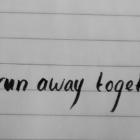 run away toget